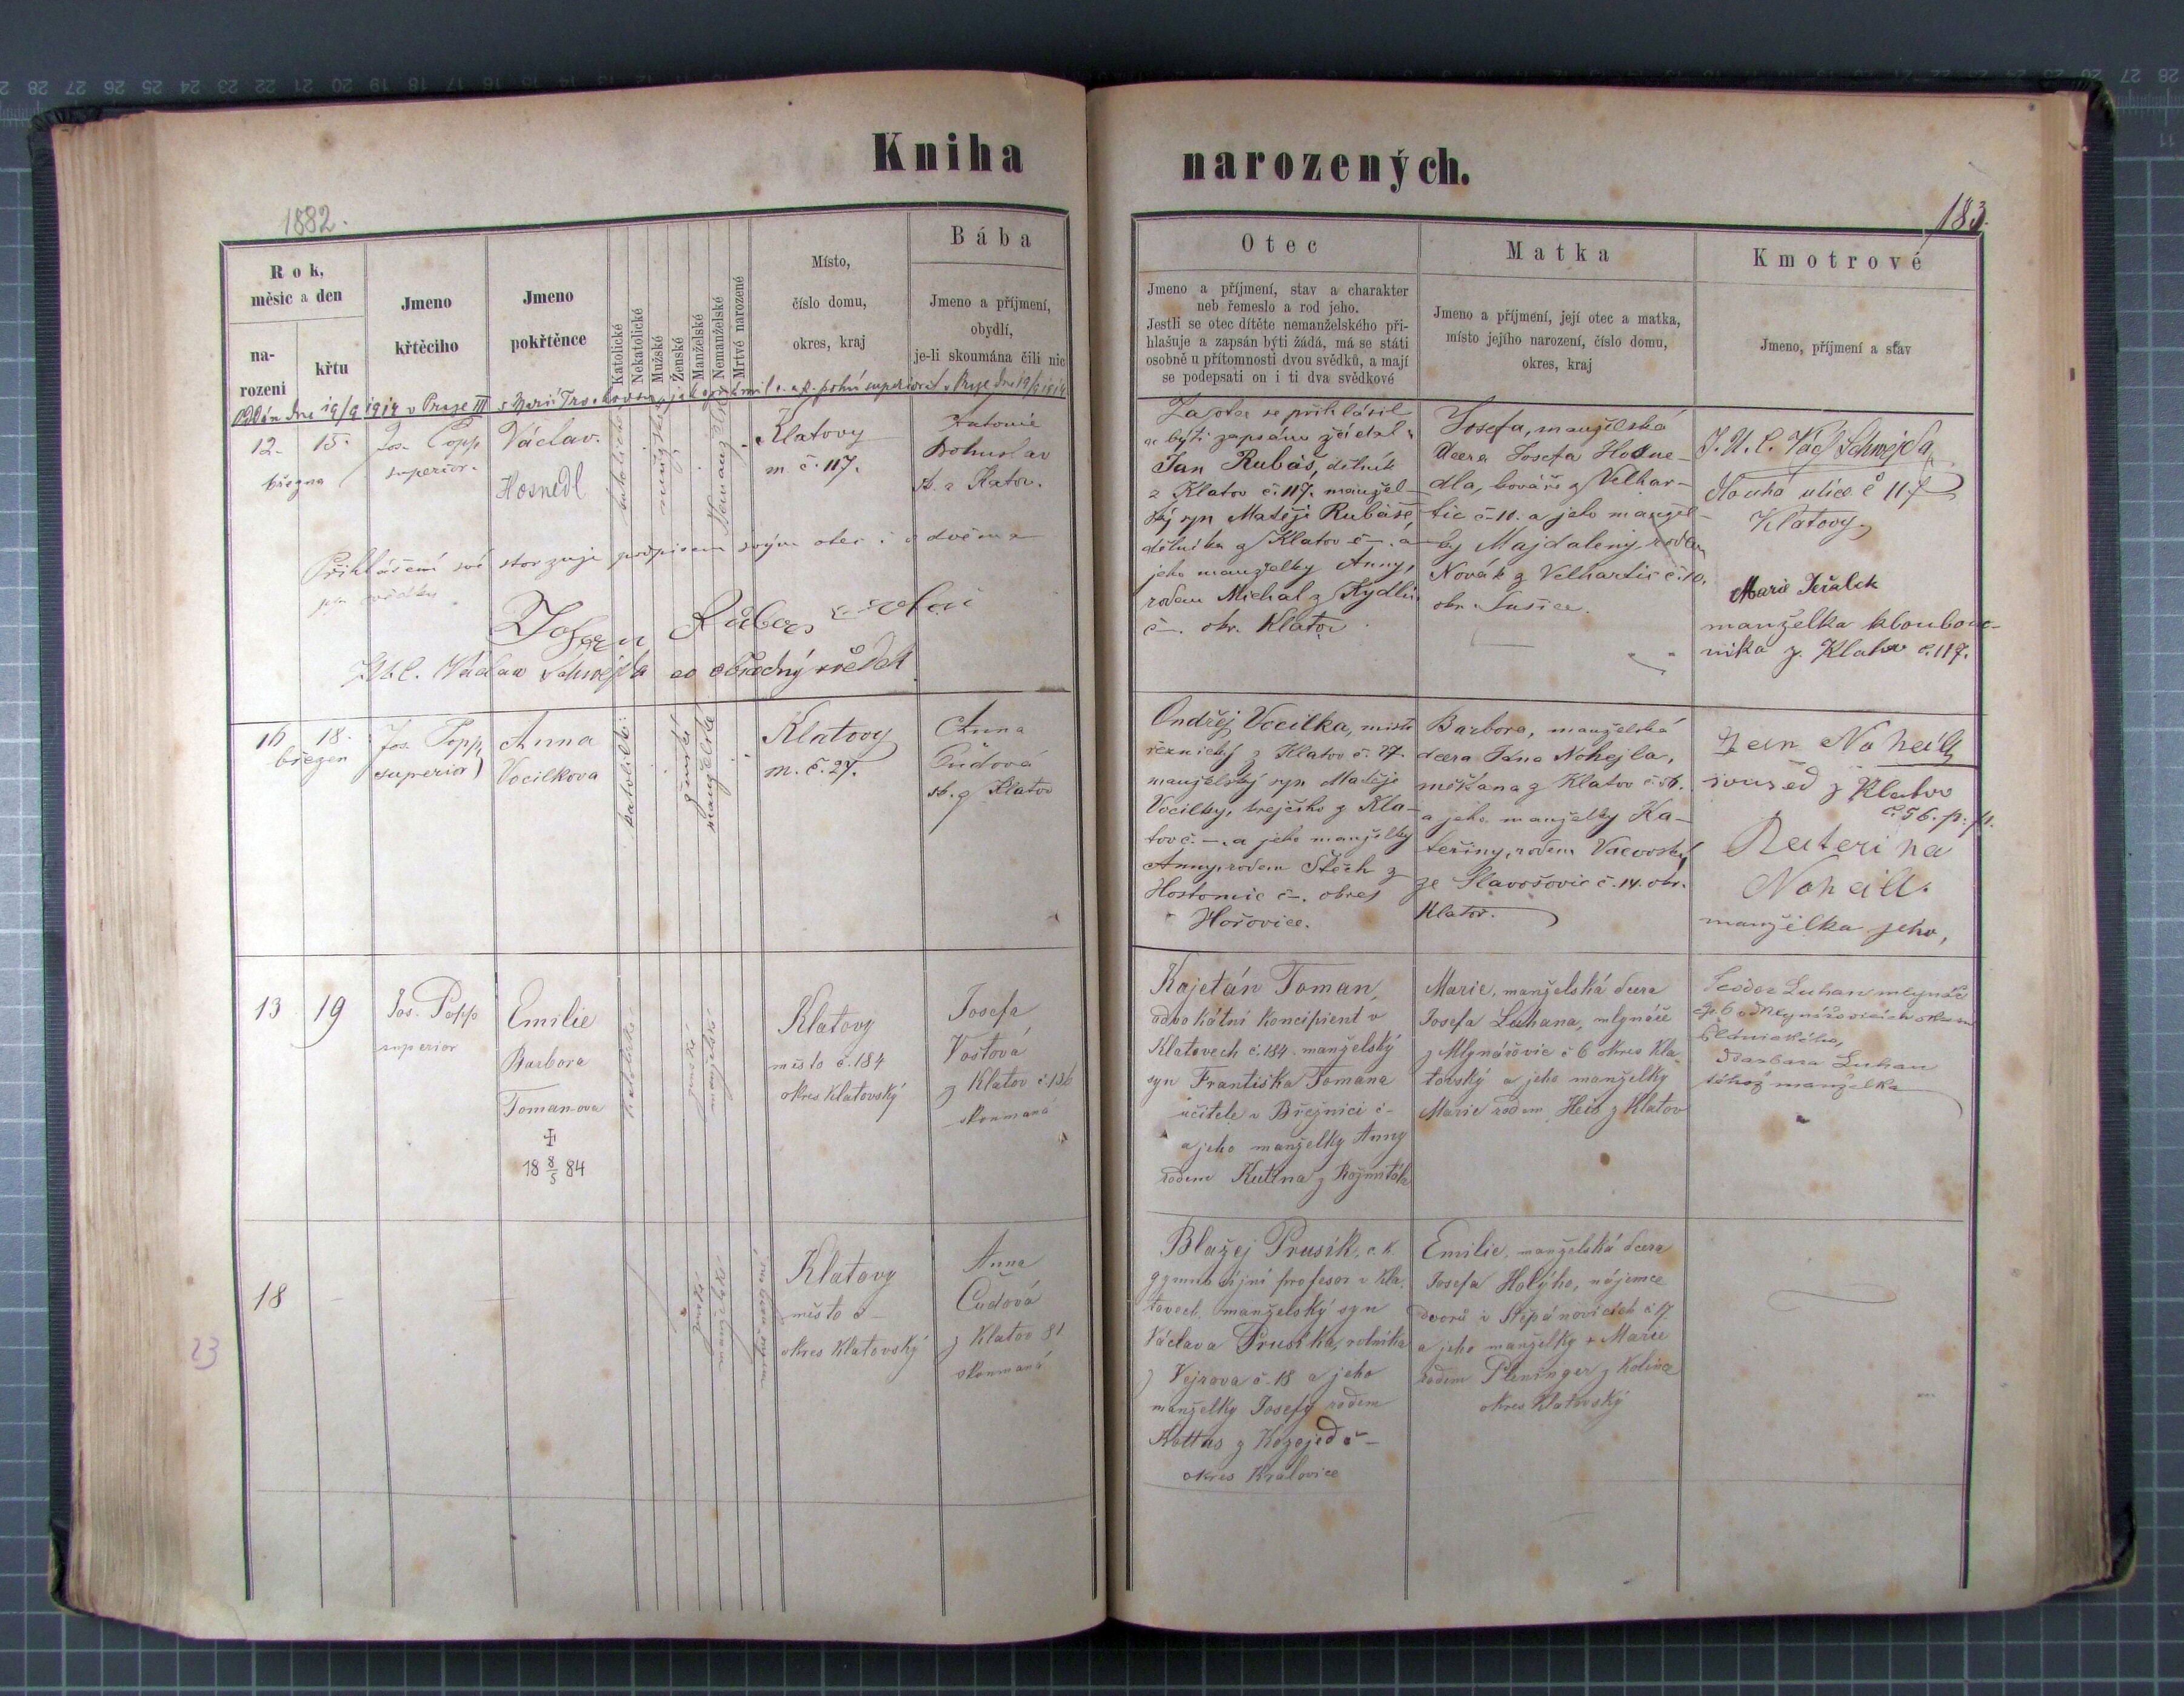 Kniha narozených.
1882.
183.
Rok,
měsíc a den
na-
rození
křtu
Jmeno
křtěcího
Jmeno
pokřtěnce
Katolické
Nekatolické
Mužské
Ženské
Manželské
Nemanželské
Mrtvě narozené
Místo,
číslo domu,
okres, kraj
Bába
Jmeno a příjmení,
obydlí,
je-li skoumána čili nic
Otec
Jmeno a příjmení, stav a charakter
neb řemeslo a rod jeho.
Jestli se otec dítěte nemanželského při-
hlašuje a zapsán býti žádá, má se státi
osobně u přítomnosti dvou svědků, a mají
se podepsati on i ti dva svědkové
Matka
Jmeno a příjmení, její otec a matka,
místo jejího narození, číslo domu,
okres, kraj
Kmotrové
Jmeno, příjmení a stav
Oddán dne 19/9 1914 v Praze III s Marií
superiorát v Praze dne 19/9 1914
12. 15.
března
Jos. Popp
superior.
Václav.
Hosnedl
katolické
mužské
Nemanželské
Klatovy
m č. 117.
Antonie
Bohuslav
z Klatov.
Přihlášení své stvrzuje podpisem svým otec i s dvěma
svědky
Václav Schwejda co svědek
Za otce se přihlásil
a býti zapsánu žádal
Jan Rubáš, dělník
z Klatov č. 117. manžel-
ský syn Matěje Rubáše,
dělníka z Klatov č –. a
jeho manželky Anny,
rodem Michal z Kydlin
č –. okr. Klatov
Josefa, manželská
dcera Josefa Hosne-
dla, kováře z Velhar-
tic č. 10. a jeho manžel-
ky Majdaleny rodem
Novák z Velhartic č. 10.
okr. Sušice.
J. U. C. Vác. Schwejda
Dlouhá ulice č 117
Klatovy
Marie Jeřalek
manželka klobouč-
níka z Klatov č. 117.
16 18.
březen
Jos. Popp
superior
Anna
Vocilkova
katolické
ženské
manželské
Klatovy
m. č. 27.
Anna
Čudová
z Klatov
Ondřej Vocilka, mistr
řeznický z Klatov č. 27.
manželský syn Matěje
Vocilky, krejčího z Kla-
tov č. –. a jeho manželky
Anny, rodem Štěch z
Hostomic č –. okres
Hořovice.
Barbora, manželská
dcera Jana Nohejla,
měšťana z Klatov č. 56.
a jeho manželky Ka-
teřiny, rodem Vacovský
ze Slavošovic č. 14. okr.
Klatov.
Jan Noheill
soused z Klatov
č. 56. p. p.
Kateřina
Noheill.
manželka jeho,
13 19
Jos. Popp
superior
Emilie
Barbora
Tomanova
✠
18 8/5 84
katolické
ženské
manželské
Klatovy
město č. 184
okres Klatovský
Josefa
Voštová
z Klatov č. 136
skoumaná
Kajetán Toman,
advokátní koncipient v
Klatovech č. 184. manželský
syn Františka Tomana
učitele v Březnici č –
a jeho manželky Anny
rodem Kutina z Rožmitála
Marie, manželská dcera
Josefa Luhana, mlynáře
z Mlynářovic č 6 okres Kla-
tovský a jeho manželky
Marie rodem Heiš z Klatov
Teodor Luhan mlynář
čp. 6 v Mlynářovicích okresu
Plánického,
Barbara Luhan
téhož manželka
18
23
ženské
manželské
Klatovy
město č –
okres Klatovský
Anna
Čudová
z Klatov 81
skoumaná
Blažej Prusík, c. k.
gymnasijní profesor v Kla-
tovech, manželský syn
Václava Prusíka, rolníka
z Vejrova č. 18 a jeho
manželky Josefy rodem
Kottas z Kozojed č –
okres Kralovice
Emilie, manželská dcera
Josefa Holýho, nájemce
dvorů v Štěpánovicích č 17.
a jeho manželky + Marie
rodem Pleninger z Kolince
okres Klatovský